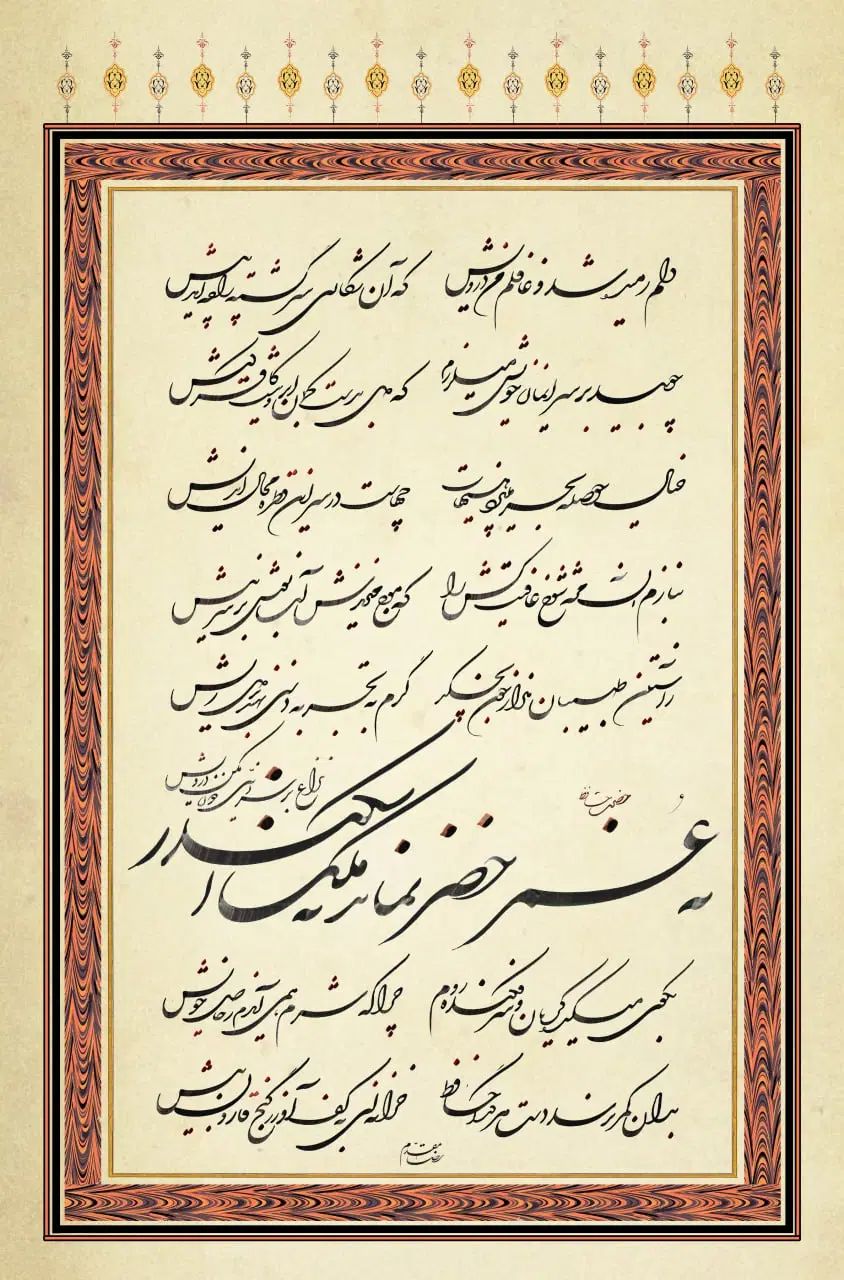 دلم رمیده شد و غافلم من درویش که آن شکاری سرگشته را چه آمد پیش
چو بید بر سر ایمان خویش میلرزم که دل بدست کمان ابروییست کافر کیش
خیال حوصله بحر میپزد هیهات چهاست در سر این قطره محال اندیش
بنازم آن مژه شوخ عافیت کش را که موج میزندش آب نوش بر سر نیش
ز آستین طبیبان هزار خون بچکد گرم به تجربه دستی نهند بر دل ریش
حضرت حافظ
نه عمر خضر بماند نه ملک اسکندر
نزاع بر سر دنیی دون مکن درویش
بکوی میکده گریان و سرفکنده روم چرا که شرم همی آیدم ز حاصل خویش
بدان کمر نرسد دست هر گدا حافظ خزانه ای به کف آور ز گنج قارون بیش
رضا مقدم